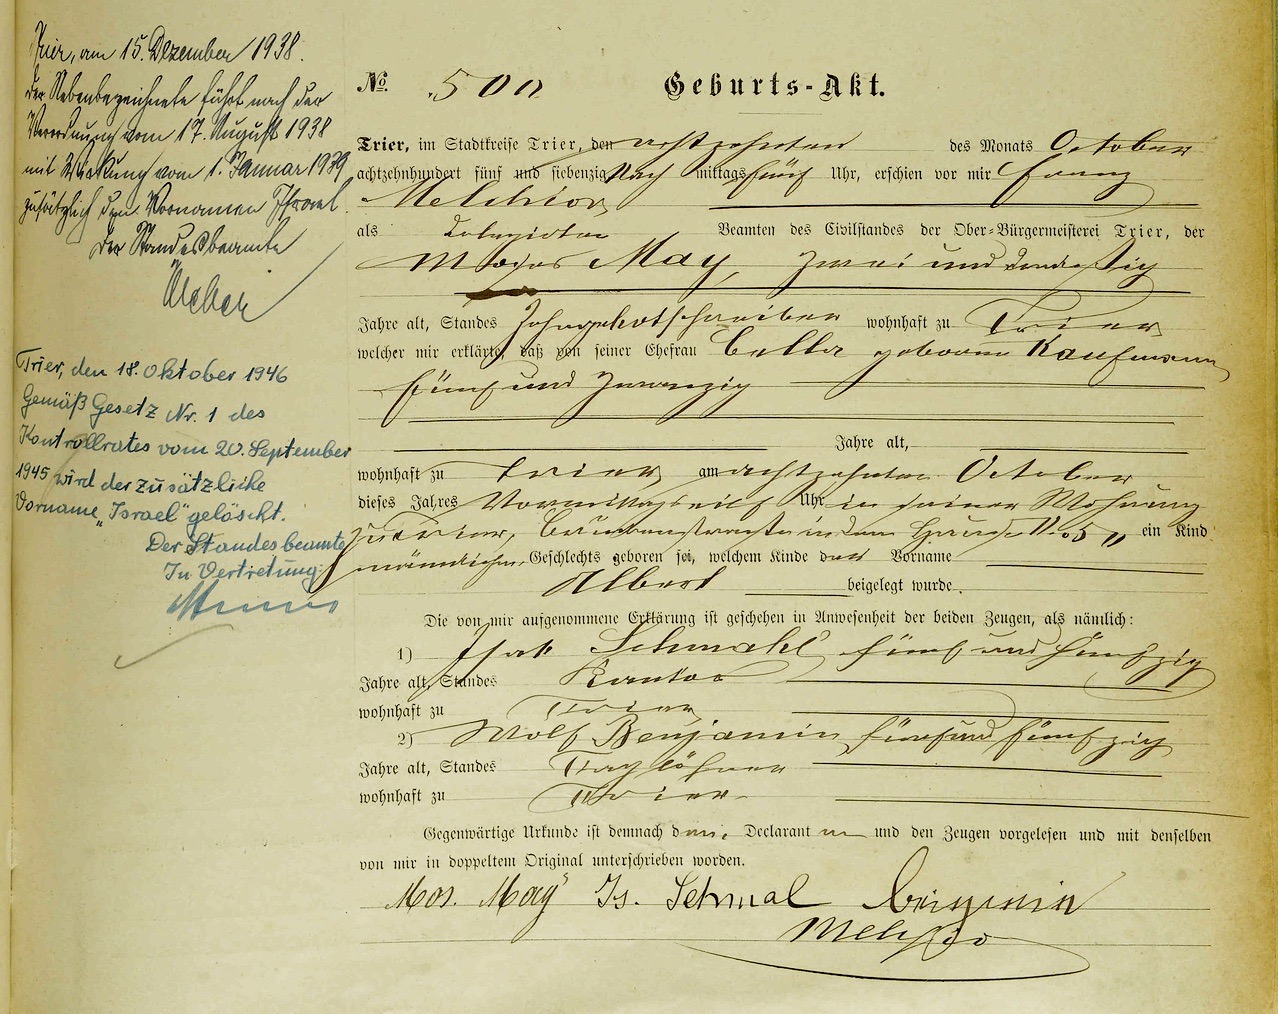 Trier, am 15. Dezember 1938.
Der Nebenbezeichnete führt nach der
Verordnung vom 17. August 1938
mit Wirkung vom 1. Januar 1939
zusätzlich den Vornamen Israel.
Der Standesbeamte
Trier, den 18. Oktober 1946
Gemäß Gesetz Nr. 1 des
Kontrollrates vom 20. September
1945 wird der zusätzliche
Vorname „Israel" gelöscht.
Der Standesbeamte
In Vertretung:
No. 500 Geburts-Akt.
Trier, im Stadtkreise Trier, den achtzehnten des Monats October
achtzehnhundert fünf und siebenzig Nach mittags fünf Uhr, erschien vor mir Franz
Melchior
als delegirten Beamten des Civilstandes der Ober-Bürgermeisterei Trier, der
Moses May, zwei und dreißig
Jahre alt, Standes wohnhaft zu Trier
welcher mir erklärte, daß von seiner Ehefrau geborene Kaufmann
fünf und zwanzig
Jahre alt,
wohnhaft zu Trier am achtzehnten October
dieses Jahres Vormittags elf Uhr in seiner Wohnung
zu Trier, in dem Hause No. 5 ein Kind
männlichen Geschlechts geboren sei, welchem Kinde der Vorname
Albert beigelegt wurde.
Die von mir aufgenommene Erklärung ist geschehen in Anwesenheit der beiden Zeugen, als nämlich:
1) Isak Schmahl, fünf und fünfzig
Jahre alt, Standes Kantor
wohnhaft zu Trier
2) Wolf Benjamin, fünf und fünfzig
Jahre alt, Standes Taglöhner
wohnhaft zu Trier
Gegenwärtige Urkunde ist demnach dem Declaranten und den Zeugen vorgelesen und mit denselben
von mir in doppeltem Original unterschrieben worden.
Mos. May Is. Schmal Benjamin
Melchior